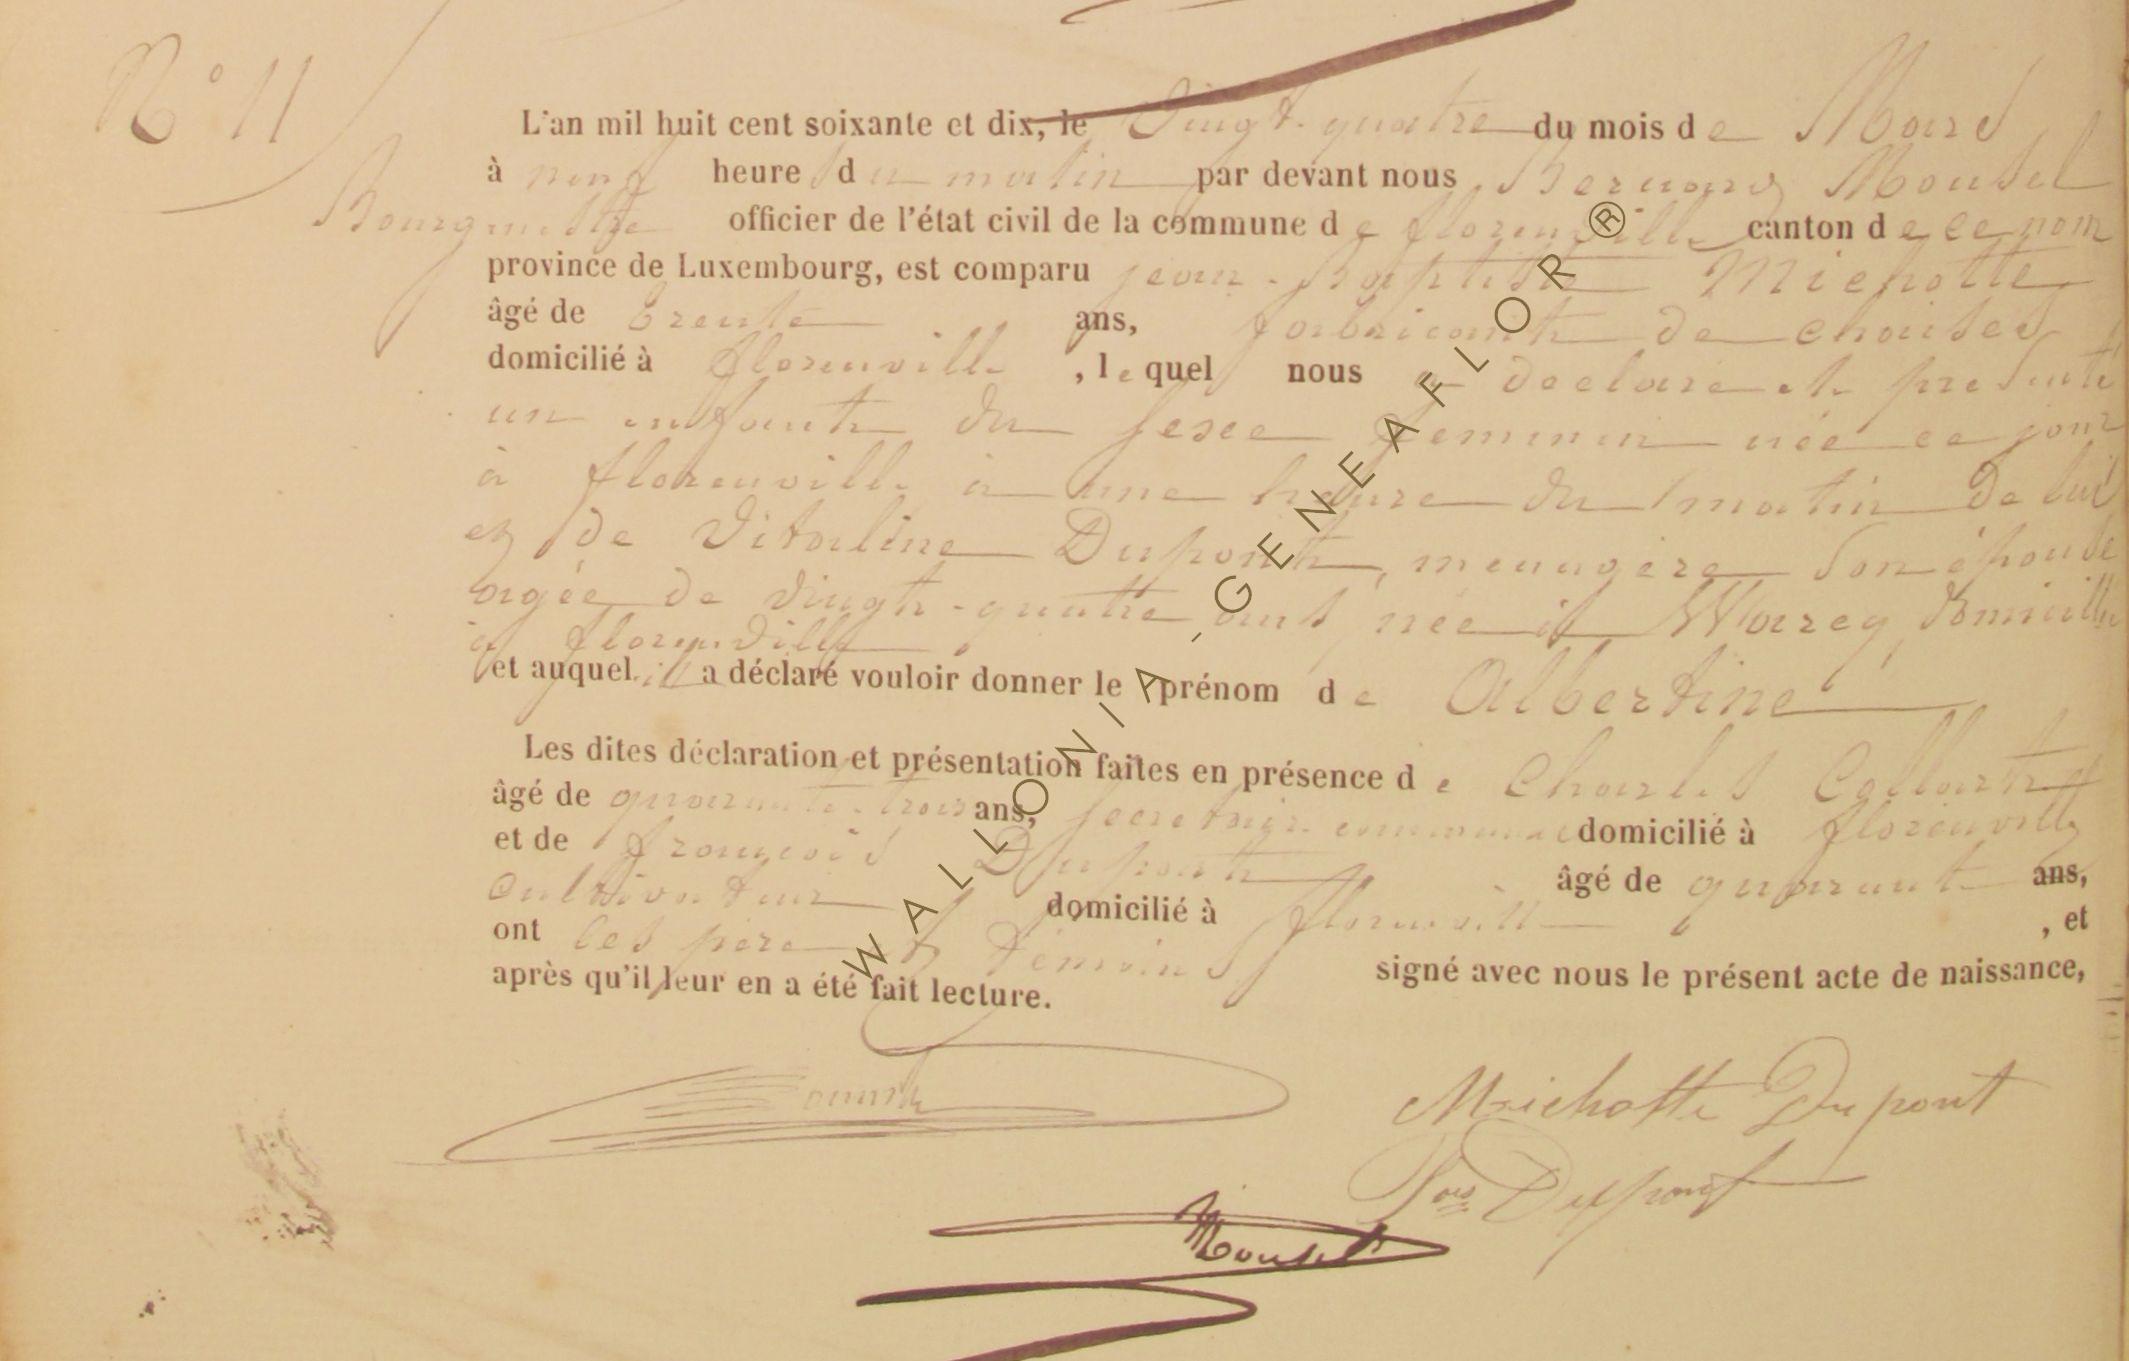 N° 11
L'an mil huit cent soixante et dix, le Vingt-quatre du mois de Mars
à neuf heures du matin par devant nous Bernard Mousel
Bourgmestre officier de l'état civil de la commune de florenville canton de ce nom
province de Luxembourg, est comparu jean-Baptiste Michotte
âgé de trente ans, fabricant de chaises
domicilié à florenville, lequel nous a déclaré et présenté
un enfant du sexe feminin née ce jour
à florenville à une heure du matin de lui
et de Vitaline Dupont, menagère son épouse
agée de vingt-quatre ans, née à domicilié
à florenville
et auquel il a déclaré vouloir donner le prénom de Albertine
Les dites déclaration et présentation faites en présence de Charles
âgé de quarante-trois ans, secretaire communal domicilié à florenville
et de françois Dupont âgé de quarante ans,
cultivateur domicilié à florenville, et
ont les père et témoins signé avec nous le présent acte de naissance,
après qu'il leur en a été fait lecture.
Michotte Dupont
Fois Dupont
Mousel
WALLONIA-GENEAFLOR®